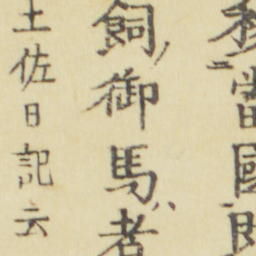 當國
飼御馬者
土佐日記云